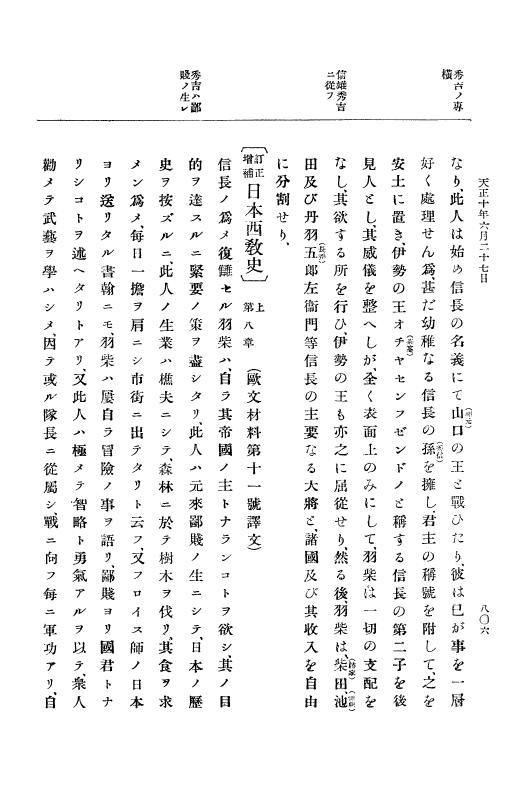 天正十年六月二十七日
八〇六
秀吉ノ專
橫
信雄秀吉
ニ從フ
秀吉ハ鄙
賤ノ生レ
なり、此人は始め信長の名義にて山口の王と戰ひたり、彼は已が事を一層
好く處理せん爲、甚だ幼稚なる信長の孫を擁し、君主の稱號を附して、之を
安土に置き、伊勢の王オチヤセンフゼンドノと稱する信長の第二子を後
見人とし、其威儀を整へしが、全く表面上のみにして、羽柴は一切の支配を
なし、其欲する所を行ひ、伊勢の王も亦之に屈從せり、然る後、羽柴は、柴田、池
田及び丹羽五郎左衞門等信長の主要なる大將と、諸國及び其收入を自由
に分割せり、
〔訂正增補日本西教史〕上第八章 (歐文材料第十一號譯文)
信長ノ爲メ復讎セル羽柴ハ、自ラ其帝國ノ主トナランコトヲ欲シ、其ノ目
的ヲ達スルニ緊要ノ策ヲ盡シタリ、此人ハ元來鄙賤ノ生ニシテ、日本ノ歷
史ヲ按ズルニ、此人ノ生業ハ樵夫ニシテ、森林ニ於テ樹木ヲ伐リ、其食ヲ求
メン爲メ、每日一擔ヲ肩ニシ市街ニ出テタリト云フ、又フロイス師ノ日本
ヨリ送リタル書翰ニモ、羽柴ハ屢自ラ冒險ノ事ヲ語リ、鄙賤ヨリ國君トナ
リシコトヲ述ヘタリトアリ、又此人ハ極メテ智略ト勇氣アルヲ以テ、衆人
勸メテ武藝ヲ學ハシメ、因テ或ル隊長ニ從屬シ、戰ニ向フ每ニ軍功アリ、自